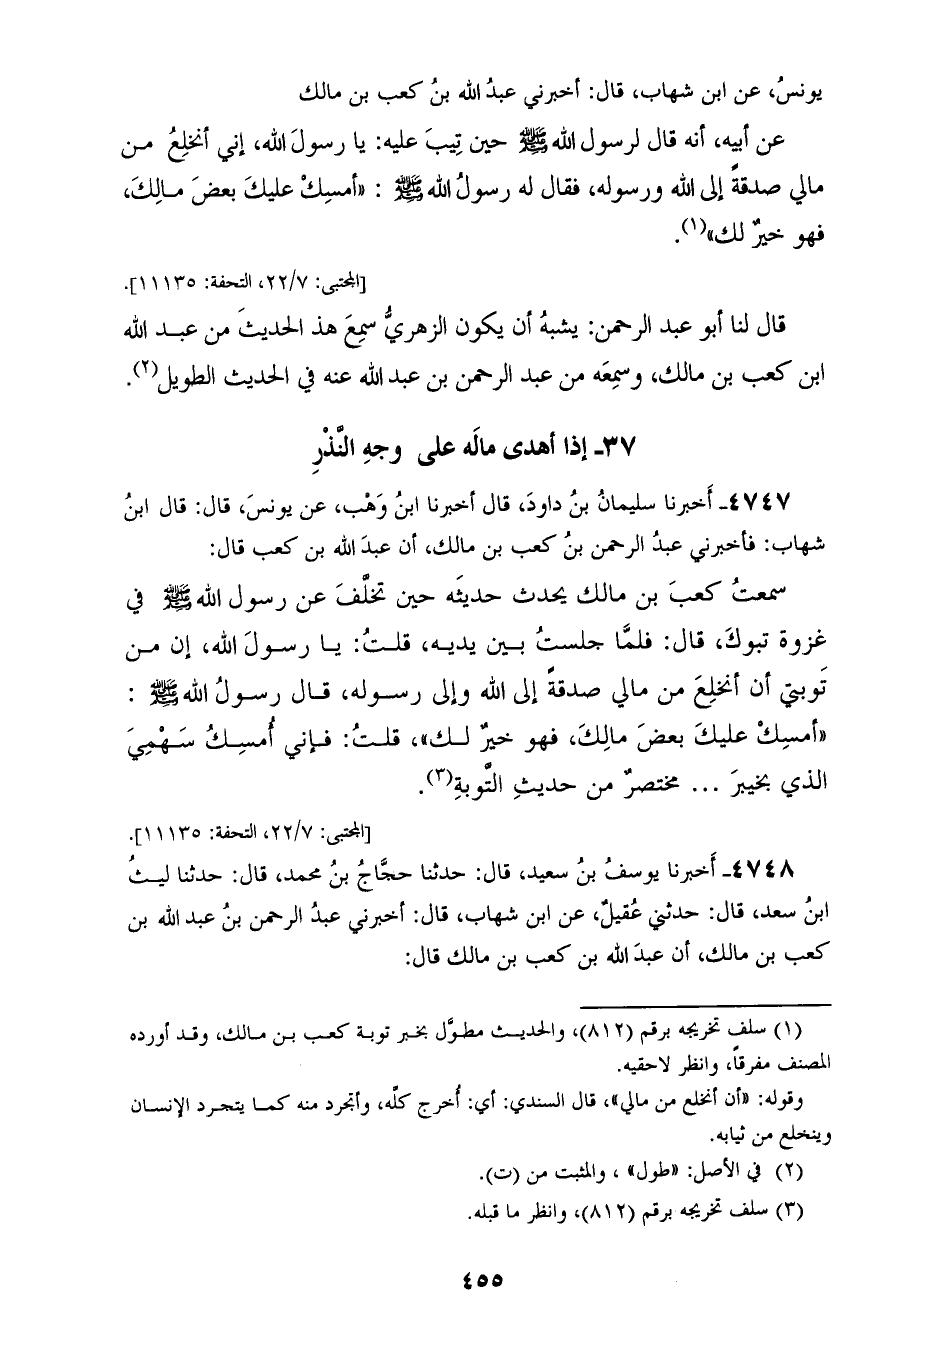 يونسُ، عن ابن شهاب، قال: أخبرني عبدُ الله بنُ كعب بن مالك
عن أبيه، أنه قال لرسول الله ﷺ حين تِيبَ عليه: يا رسولَ الله، إني أَنخلِعُ من
مالي صدقةً إلى الله ورسوله، فقال له رسولُ الله ﷺ : «أمسِكْ عليكَ بعضَ مـالِكَ،
فهو خيرٌ لك»(١).
[المجتبى: ٢٢/٧، التحفة: ١١١٣٥].
قال لنا أبو عبد الرحمن: يشبهُ أن يكون الزهريُّ سمِعَ هذ الحديثَ من عبـد الله
ابن كعب بن مالك، وسمِعَه من عبد الرحمن بن عبد الله عنه في الحديث الطويل(٢).
٣٧ـ إذا أهدى مالَه على وجهِ النَّذْرِ
٤٧٤٧ـ أَخبرنا سليمانُ بنُ داودَ، قال أخبرنا ابنُ وَهْب، عن يونسَ، قال: قال ابنُ
شهاب: فأخبرني عبدُ الرحمن بنُ كعب بن مالك، أن عبدَ الله بن كعب قال:
سمعتُ كعبَ بن مالك يحدث حديثَه حين تخلَّفَ عن رسول الله ﷺ في
غزوة تبوكَ، قال: فلمَّا جلستُ بـين يديـه، قلـتُ: يـا رسـولَ الله، إن مـن
تَوبتي أن أَنخلِعَ من مالي صدقةً إلى الله وإلى رسـوله، قـال رسـولُ الله ﷺ :
«أمسِكْ عليكَ بعضَ مالِكَ، فهو خيرٌ لـك»، قلـتُ: فـإني أُمسِـكُ سَـهْمِيَ
الذي بخيبرَ ... مختصرٌ من حديثِ التَّوبةِ(٣).
[المجتبى: ٢٢/٧، التحفة: ١١١٣٥].
٤٧٤٨ـ أَخبرنا يوسفُ بنُ سعيد، قال: حدثنا حجَّاجُ بنُ محمد، قال: حدثنا ليـثُ
ابنُ سعد، قال: حدثني عُقيلٌ، عن ابن شهاب، قال: أخبرني عبدُ الرحمن بنُ عبد الله بن
كعب بن مالك، أن عبدَ الله بن كعب بن مالك قال:
(١) سلف تخريجه برقم (٨١٢)، والحديث مطوَّل بخبر توبـة كعـب بـن مـالك، وقـد أورده
المصنف مفرقاً، وانظر لاحقيه.
وقوله: «أن أنخلع من مالي»، قال السندي: أي: أُخرج كلَّه، وأتجرد منه كمـا يتجـرد الإنسـان
وينخلع من ثيابه.
(٢) في الأصل: «طول» ، والمثبت من (ت).
(٣) سلف تخريجه برقم (٨١٢)، وانظر ما قبله.
٤٥٥